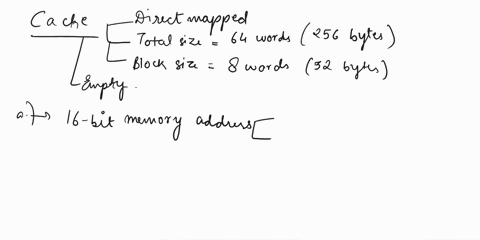 Cache
Direct mapped
Total size = 64 words (256 bytes)
Block size = 8 words (32 bytes)
Empty.
a.)→ 16-bit memory address